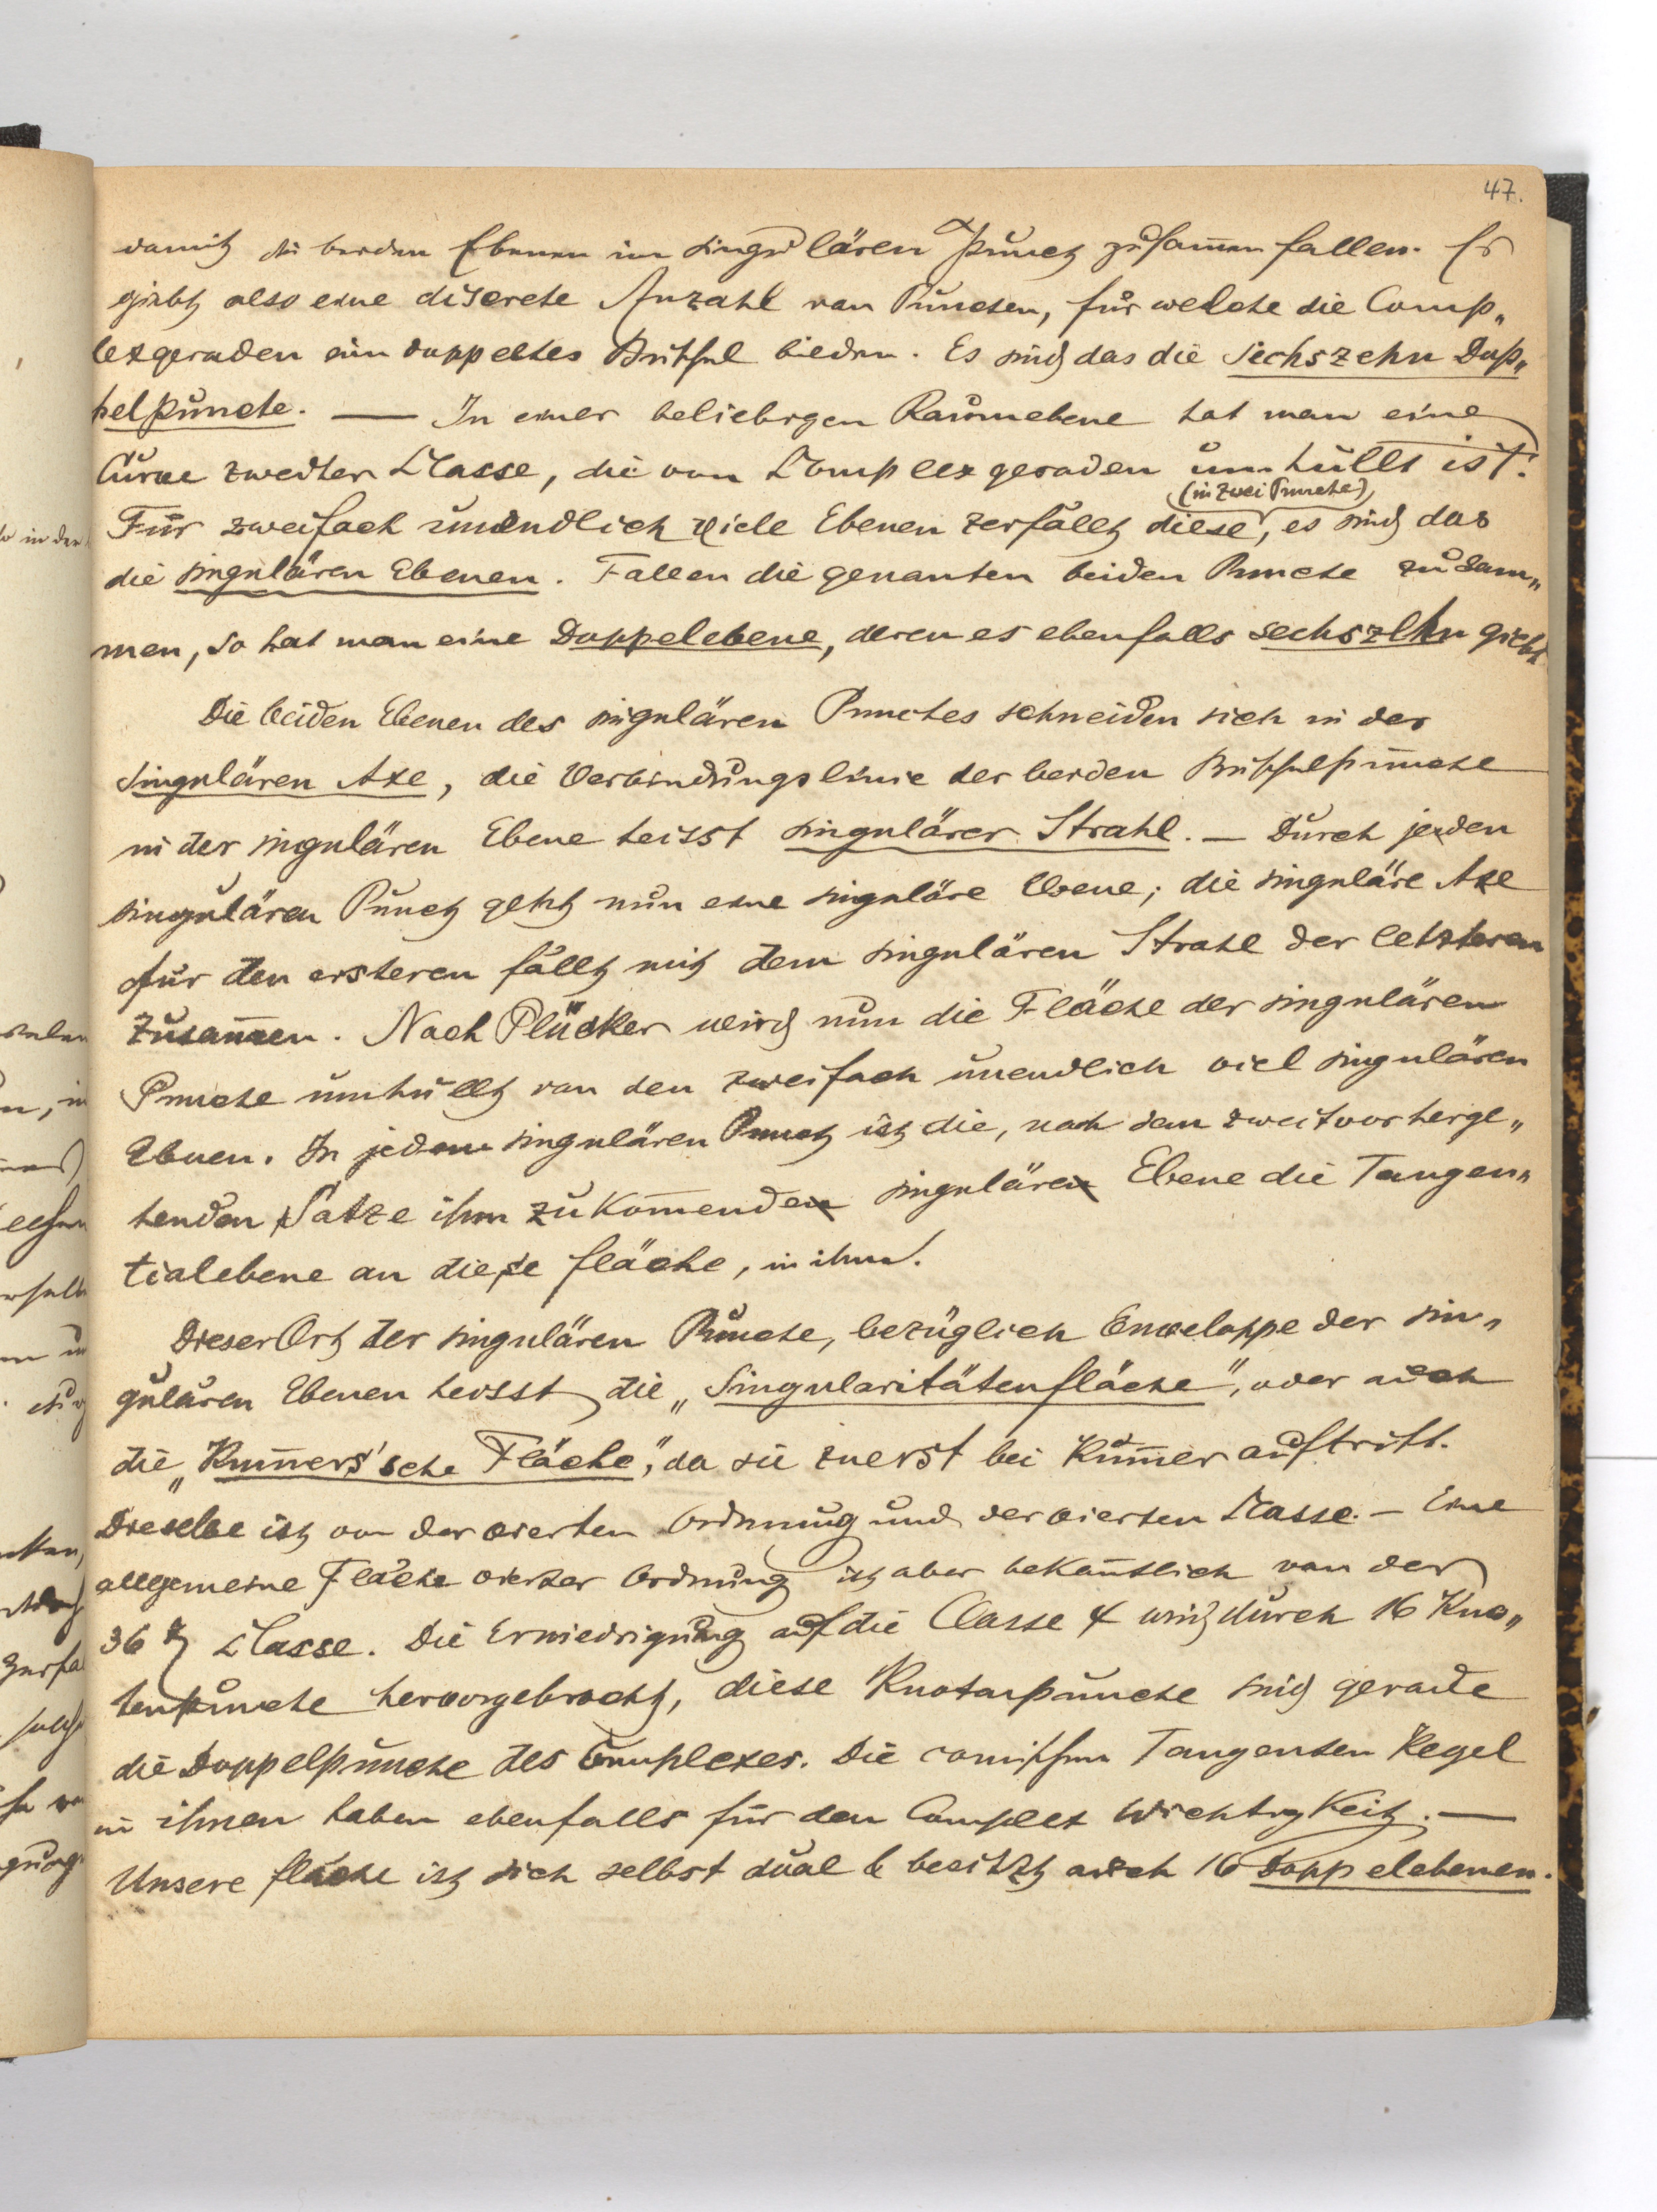 47.
damit die beiden Ebenen im singulären Punct zusam̄en fallen. Es
giebt also eine discrete Anzahl von Puncten, für welche die Comp„
lexgeraden ein doppeltes Büschel bilden. Es sind das die sechszehn Dop„
pelpuncte. — In einer beliebigen Raumebene hat man eine
Curve zweiter Classe, die von Complexgeraden umhüllt ist.
(in zwei Puncte)
Für zweifach unendlich viele Ebenen zerfällt diese, es sind das
die singulären Ebenen. Fallen die genanten beiden Puncte zusam„
men, so hat man eine Doppelebene, deren es ebenfalls sechszehn giebt
Die beiden Ebenen des singulären Punctes schneiden sich in der
singulären Axe, die Verbindungslinie der beiden Büschelpuncte
in der singulären Ebene heisst singulärer Strahl. — Durch jeden
singulären Punct geht nun eine singuläre Ebene; die singuläre Axe
für den ersteren fällt mit dem singulären Strahl der letzteren
zusam̄en. Nach Plücker wird nun die Fläche der singulären
Puncte umhüllt von den zweifach unendlich viel singulären
Ebnen. In jedem singulären Punct ist die, nach dem zweitvorherge„
henden Satze ihm zukom̄ende singuläre Ebene die Tangen„
tialebene an diese Fläche, in ihm.
Dieser Ort der singulären Puncte, bezüglich Enveloppe der sin„
gulären Ebenen heisst die „Singularitätenfläche“, oder auch
die „Kum̄ers'sche Fläche“, da sie zuerst bei Kum̄er auftritt.
Dieselbe ist von der vierten Ordnung und der vierten Classe. — Eine
allgemeine Fläche vierter Ordnung ist aber bekan̄tlich von der
36t Classe. Die Erniedrigung auf die Classe 4 wird durch 16 Kno„
tenpuncte hervorgebracht, diese Knotenpuncte sind gerade
die Doppelpuncte des Complexes. Die conischen Tangenten Kegel
in ihnen haben ebenfalls für den Complex Wichtigkeit. —
Unsere Fläche ist sich selbst dual & besitzt auch 16 Doppelebenen.